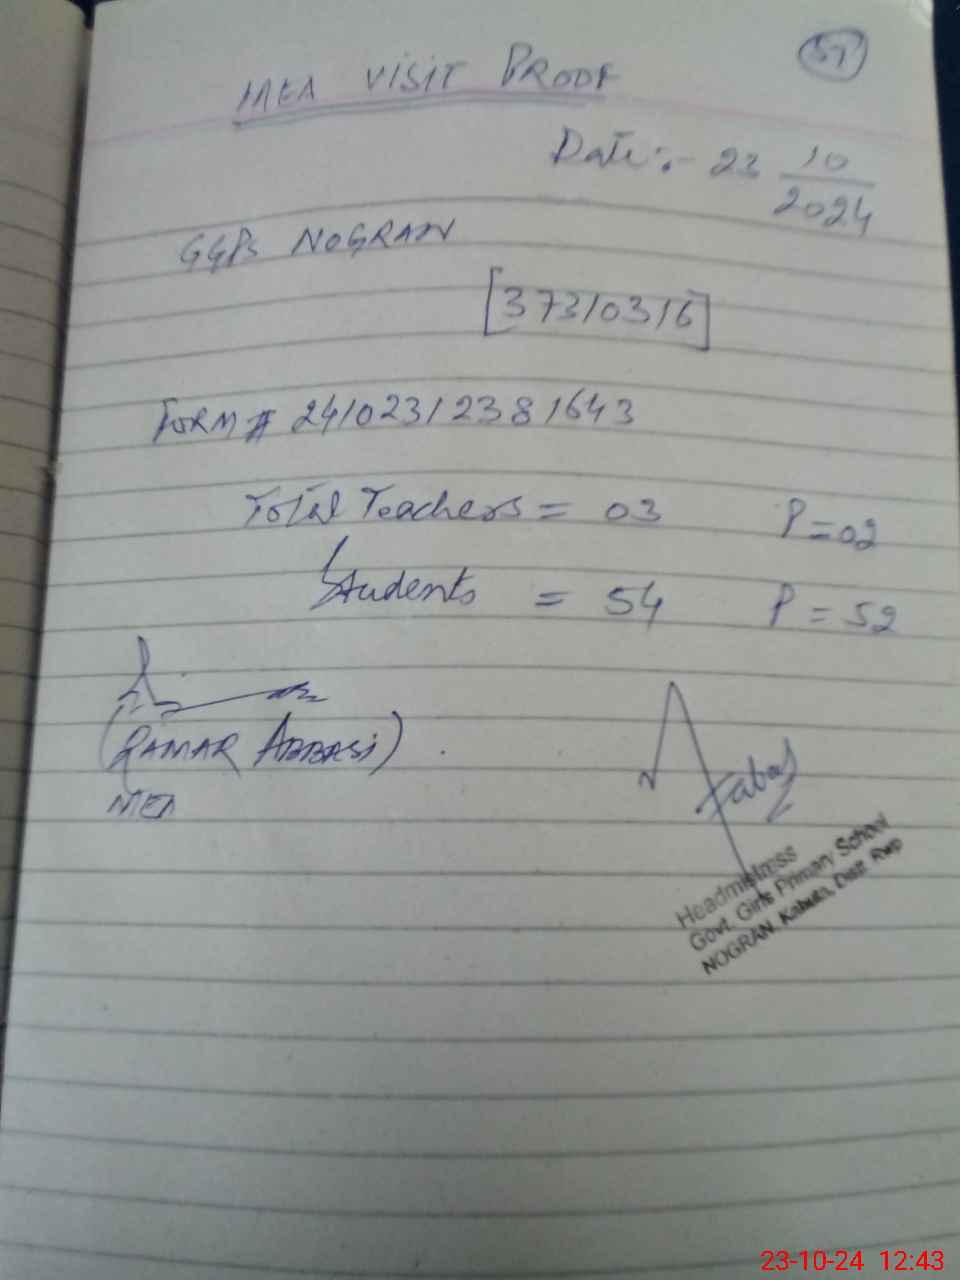 57
MEA VISIT PROOF
Date:- 23 10/2024
GGPS NOGRAN
[37310316]
FORM # 24102312381643
Total Teachers = 03 P = 02
Students = 54 P = 52
(QAMAR ABBASi)
MEA
Headmistress
Govt. Girls Primary School
NOGRAN, Kahuta, Distt. Rwp
23-10-24 12:43